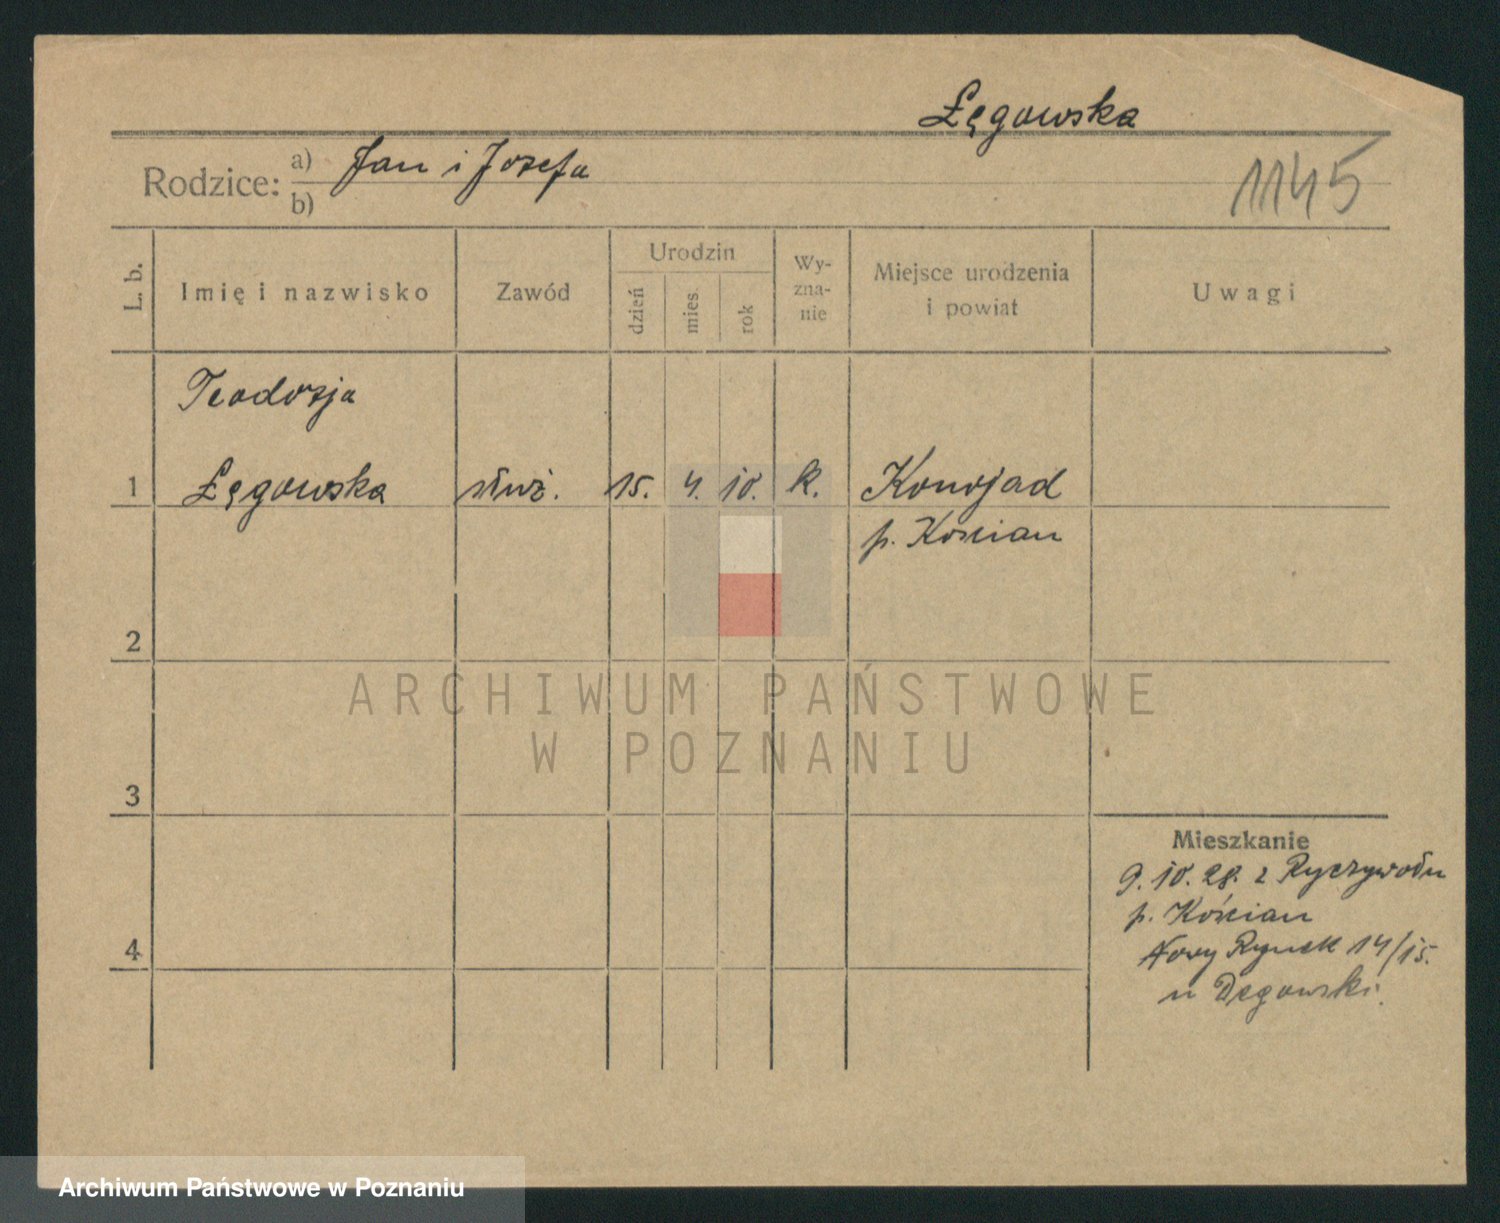 Łęgowska
Rodzice: a) Jan i Jozefa
b)
1145
L. b.
Imię i nazwisko
Zawód
Urodzin
dzień
mies.
rok
Wy-
zna-
nie
Miejsce urodzenia
i powiat
Uwagi
Teodozja
1 Łęgowska służ. 15. 4. 10. k. Konojad
p. Kościan
2
3
4
Mieszkanie
9. 10. 28. z Ryczywołu
p. Kościan
Nowy Rynek 14/15.
u Degowski.
ARCHIWUM PAŃSTWOWE
W POZNANIU
Archiwum Państwowe w Poznaniu